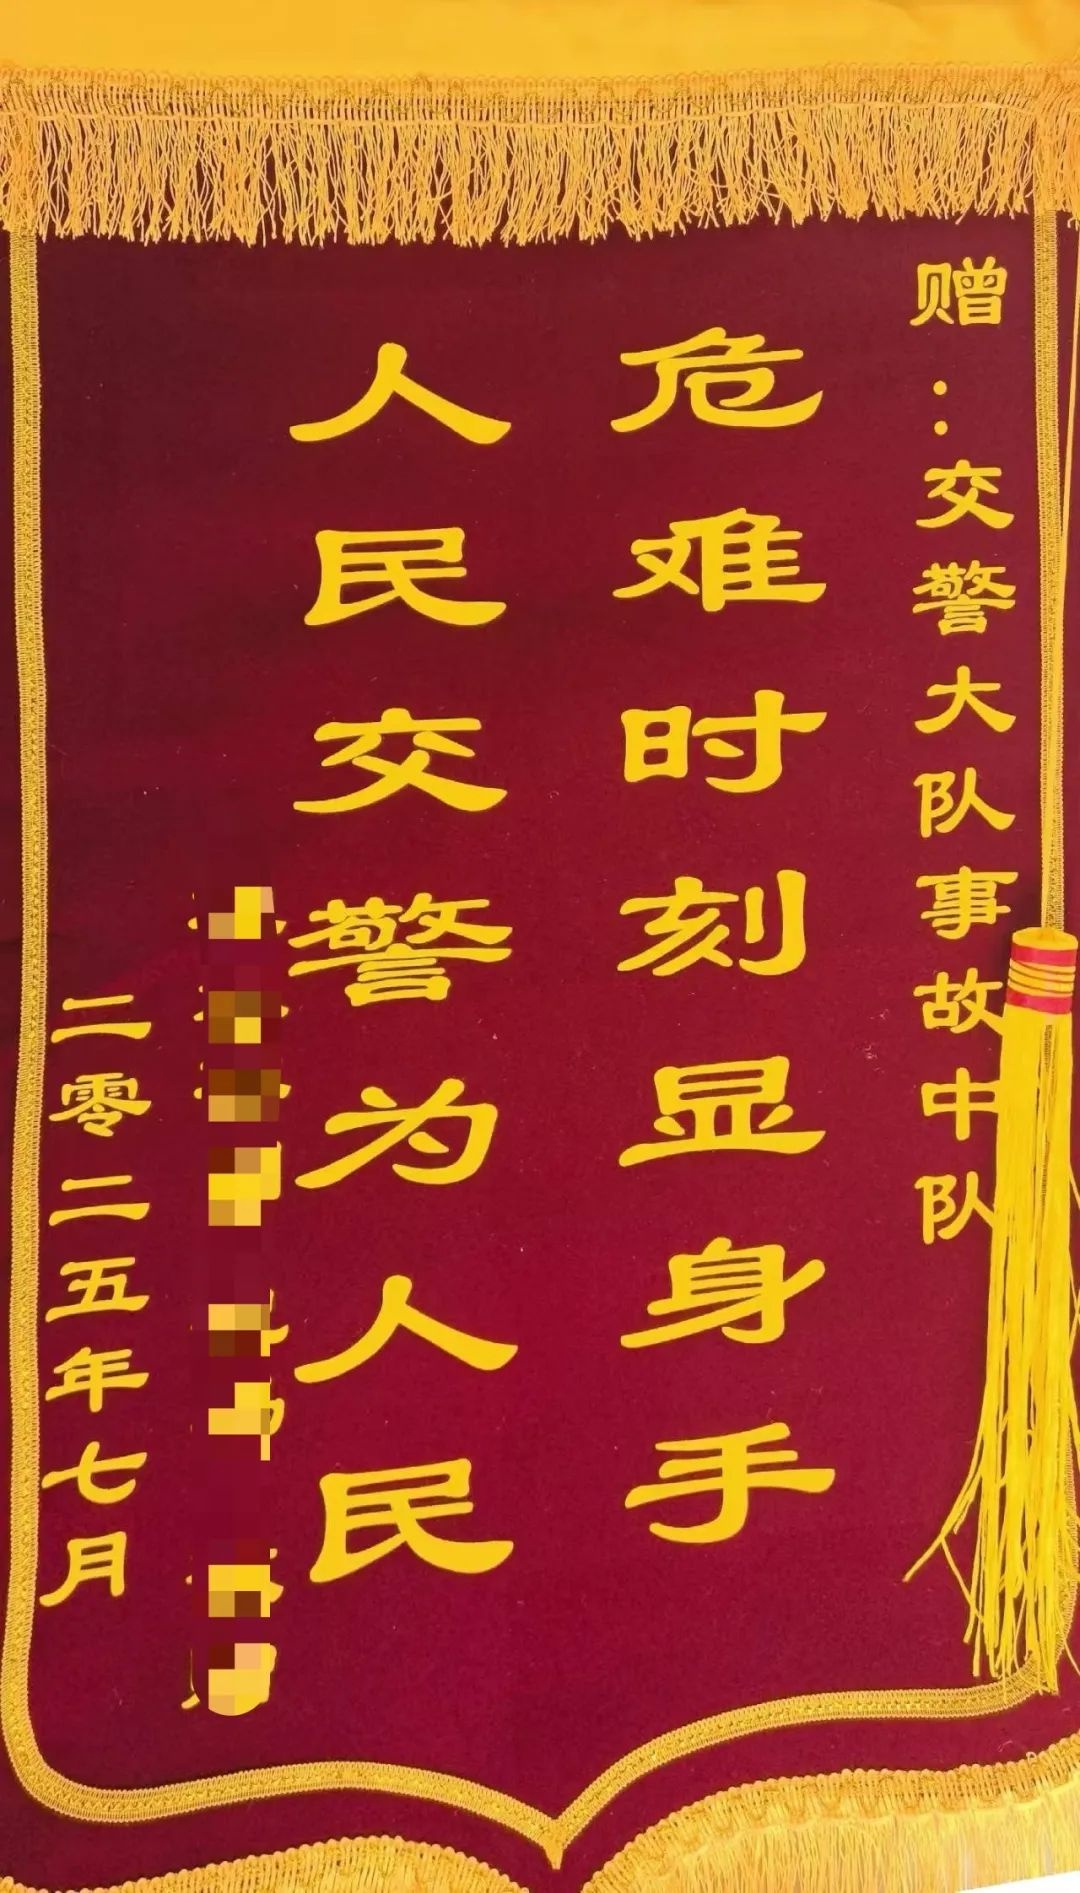 赠：交警大队事故中队
危难时刻显身手
人民交警为人民
二零二五年七月